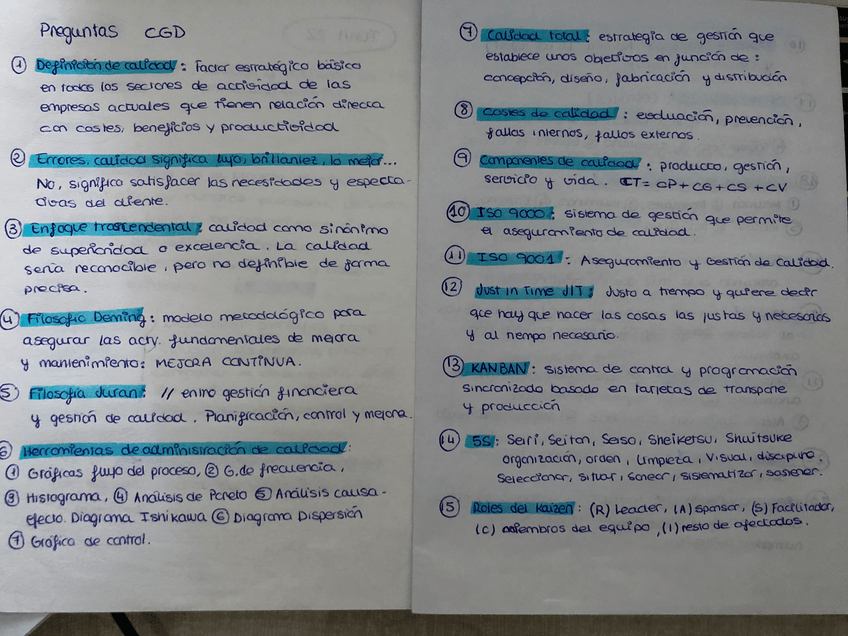 Preguntas CGD
① Definición de calidad : Factor estratégico básico
en todos los sectores de actividad de las
empresas actuales que tienen relación directa
con costes, beneficios y productividad
② Errores, calidad significa lujo, brillantez, lo mejor...
No, significa satisfacer las necesidades y especta-
tivas del cliente.
③ Enfoque trascendental : calidad como sinónimo
de superioridad o excelencia. La calidad
seria reconocible, pero no definible de forma
precisa.
④ Filosofía Deming : modelo metodológico para
asegurar las actv. fundamentales de mejora
y mantenimiento: MEJORA CONTINUA.
⑤ Filosofía Juran : // entre gestión financiera
y gestión de calidad. Planificación, control y mejora.
⑥ Herramientas de administración de calidad :
① Gráficas flujo del proceso, ② G. de frecuencia,
③ Histograma, ④ Análisis de Pareto ⑤ Análisis causa-
efecto. Diagrama Ishikawa ⑥ Diagrama Dispersión
⑦ Gráfica de control.
⑦ Calidad total : estrategia de gestión que
establece unos objetivos en función de :
concepción, diseño, fabricación y distribución
⑧ Costes de calidad : evaluación, prevención,
fallos internos, fallos externos.
⑨ Componentes de calidad : producto, gestión,
servicio y vida. CT = CP + CG + CS + CV
⑩ ISO 9000 : sistema de gestión que permite
el aseguramiento de calidad.
⑪ ISO 9001 : Aseguramiento y Gestión de Calidad.
⑫ Just in Time JIT : Justo a tiempo y quiere decir
que hay que hacer las cosas las justas y necesarias
y al tiempo necesario.
⑬ KANBAN : sistema de control y programación
sincronizada basado en tarjetas de transporte
y producción
⑭ 5S : Seiri, Seiton, Seiso, Sheiketsu, Shuitsuke
organización, orden, limpieza, visual, disciplina.
Seleccionar, situar, sanear, sistematizar, sostener.
⑮ Roles del Kaizen : (R) Leader, (A) sponsor, (S) Facilitador,
(C) miembros del equipo, (I) resto de afectados.